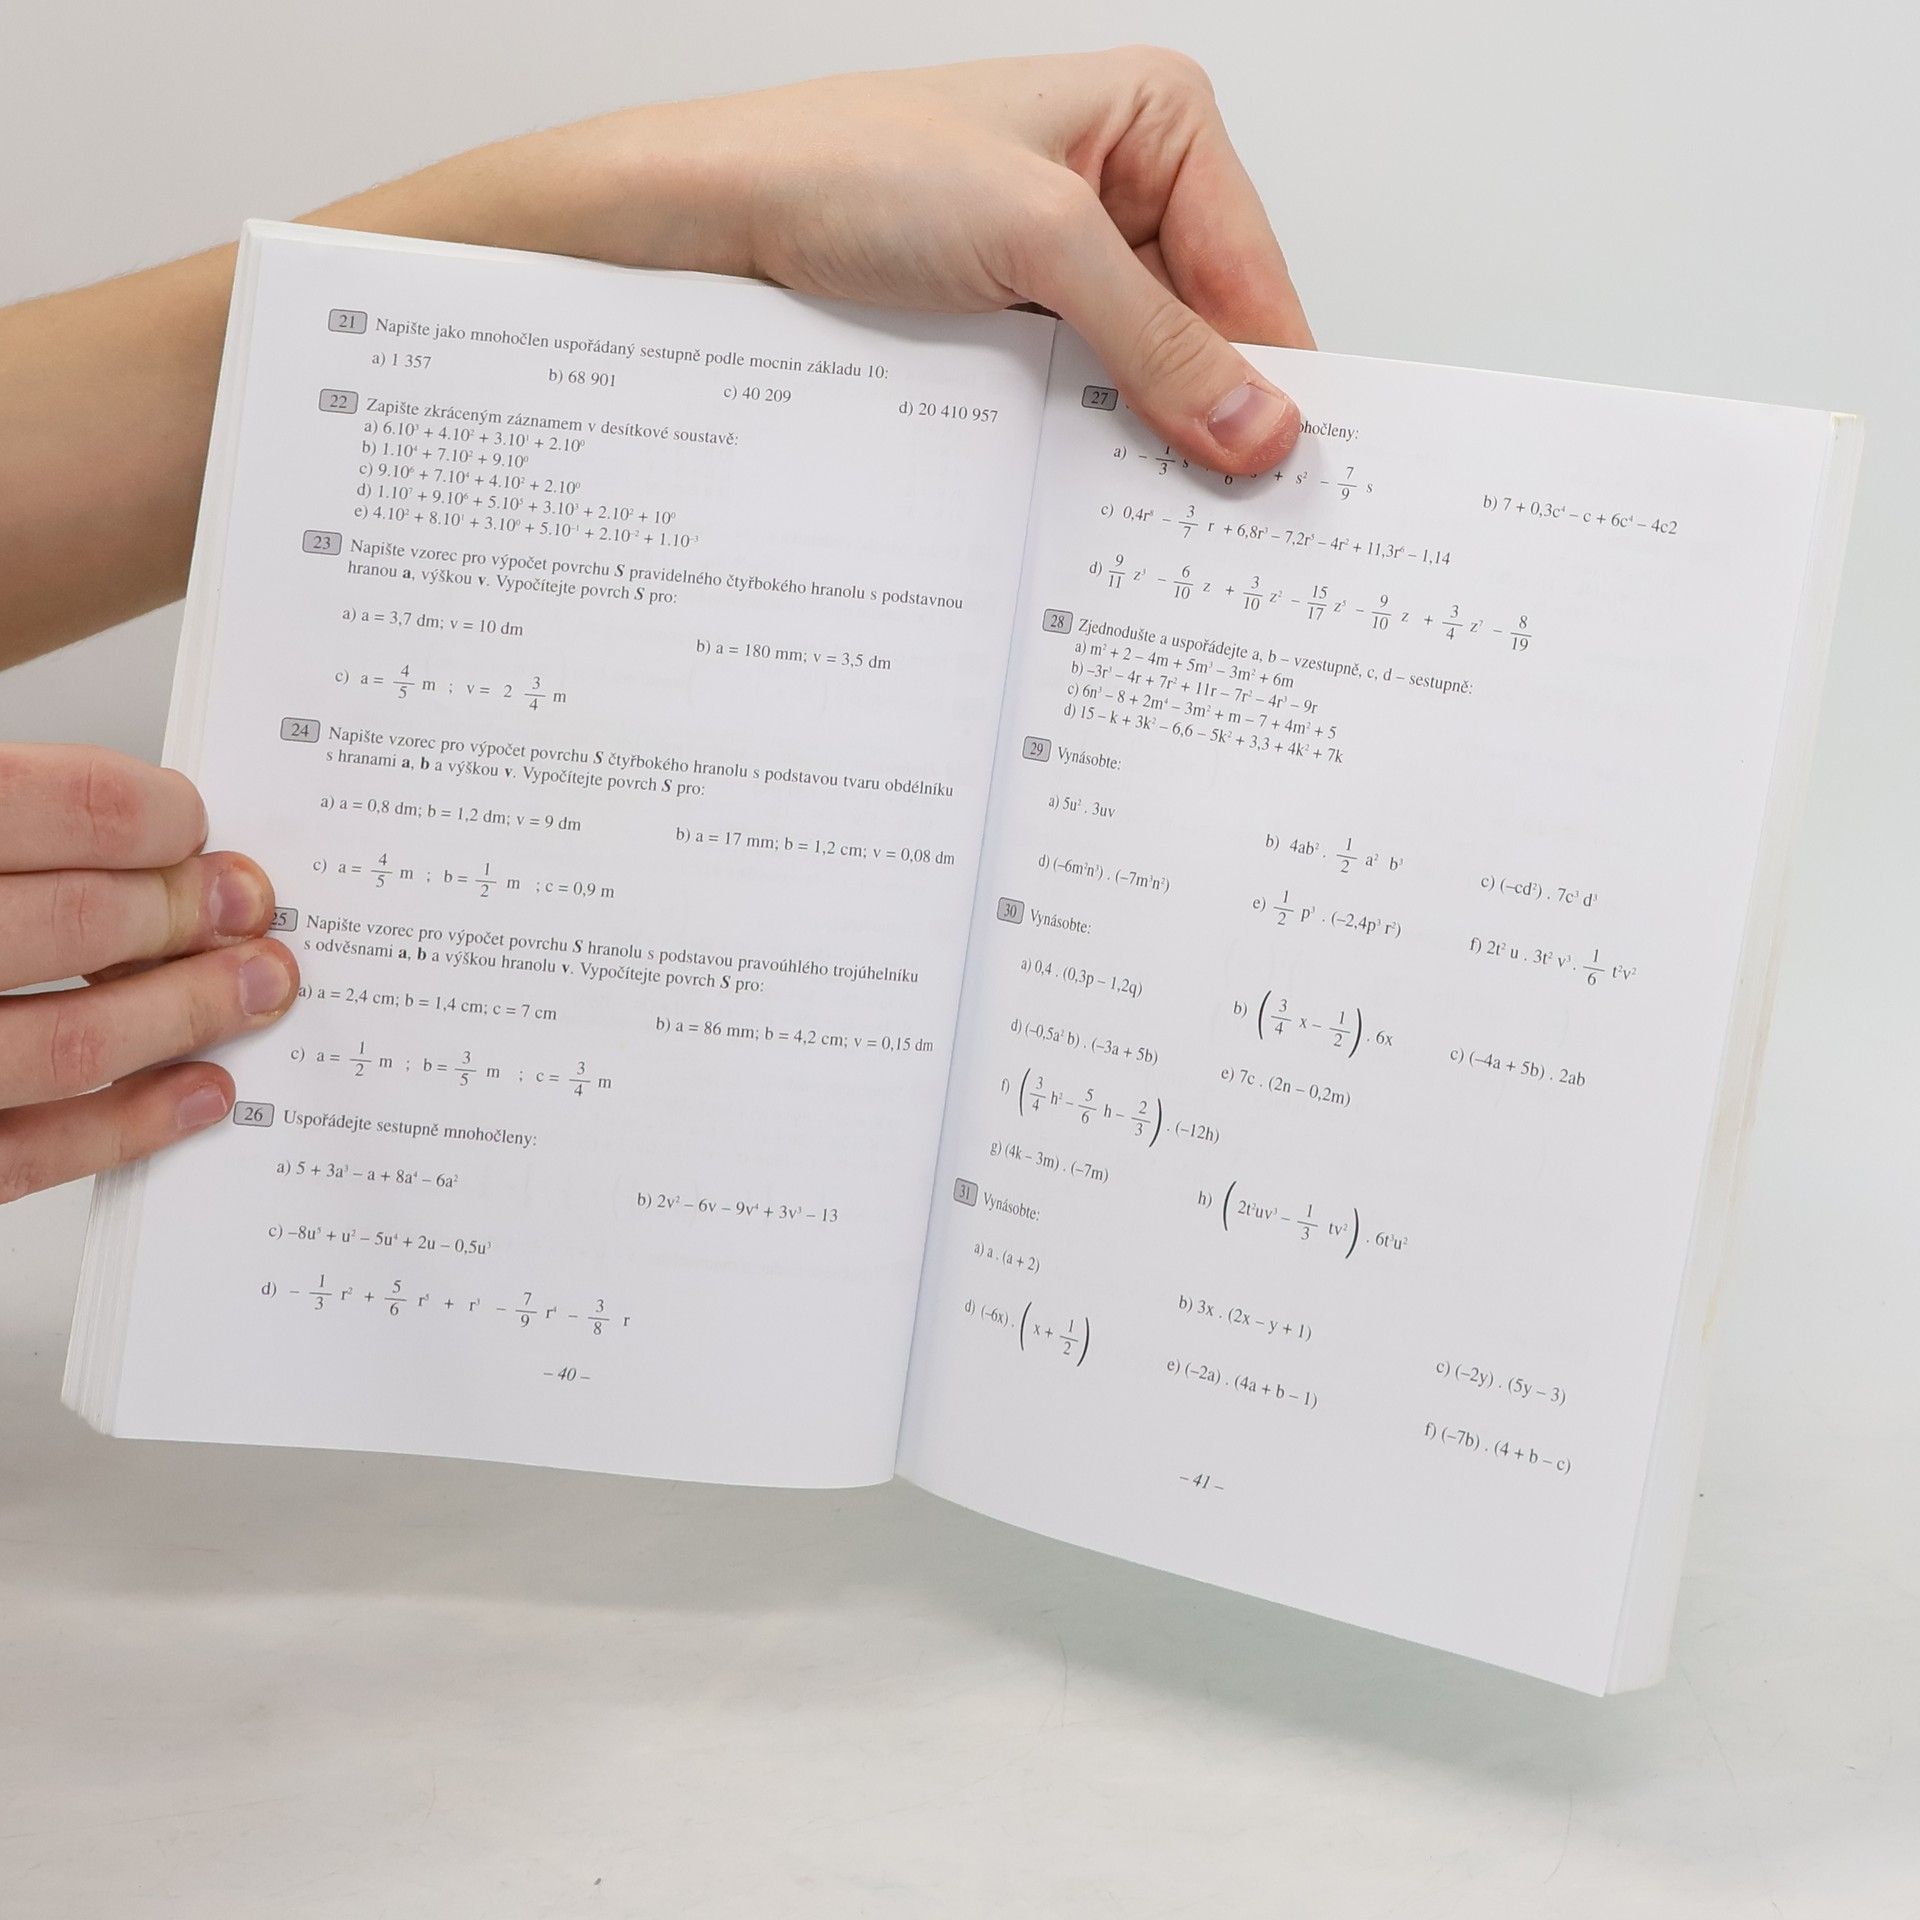 21 Napište jako mnohočlen uspořádaný sestupně podle mocnin základu 10:
a) 1 357 b) 68 901 c) 40 209 d) 20 410 957
22 Zapište zkráceným záznamem v desítkové soustavě:
a) 6.10³ + 4.10² + 3.10¹ + 2.10⁰
b) 1.10⁴ + 7.10² + 9.10⁰
c) 9.10⁶ + 7.10⁴ + 4.10² + 2.10⁰
d) 1.10⁷ + 9.10⁶ + 5.10⁵ + 3.10³ + 2.10² + 10⁰
e) 4.10² + 8.10¹ + 3.10⁰ + 5.10⁻¹ + 2.10⁻² + 1.10⁻³
23 Napište vzorec pro výpočet povrchu S pravidelného čtyřbokého hranolu s podstavnou
hranou a, výškou v. Vypočítejte povrch S pro:
a) a = 3,7 dm; v = 10 dm b) a = 180 mm; v = 3,5 dm
c) a = 4/5 m ; v = 2 3/4 m
24 Napište vzorec pro výpočet povrchu S čtyřbokého hranolu s podstavou tvaru obdélníku
s hranami a, b a výškou v. Vypočítejte povrch S pro:
a) a = 0,8 dm; b = 1,2 dm; v = 9 dm b) a = 17 mm; b = 1,2 cm; v = 0,08 dm
c) a = 4/5 m ; b = 1/2 m ; c = 0,9 m
25 Napište vzorec pro výpočet povrchu S hranolu s podstavou pravoúhlého trojúhelníku
s odvěsnami a, b a výškou hranolu v. Vypočítejte povrch S pro:
a) a = 2,4 cm; b = 1,4 cm; c = 7 cm b) a = 86 mm; b = 4,2 cm; v = 0,15 dm
c) a = 1/2 m ; b = 3/5 m ; c = 3/4 m
26 Uspořádejte sestupně mnohočleny:
a) 5 + 3a³ – a + 8a⁴ – 6a² b) 2v² – 6v – 9v⁴ + 3v³ – 13
c) –8u⁵ + u² – 5u⁴ + 2u – 0,5u³
d) – 1/3 r² + 5/6 r⁵ + r³ – 7/9 r⁴ – 3/8 r
– 40 –
27
a) – 1/3 s + s² – 7/9 s b) 7 + 0,3c⁴ – c + 6c⁴ – 4c2
c) 0,4r⁸ – 3/7 r + 6,8r³ – 7,2r⁵ – 4r² + 11,3r⁶ – 1,14
d) 9/11 z³ – 6/10 z + 3/10 z² – 15/17 z⁵ – 9/10 z + 3/4 z⁷ – 8/19
28 Zjednodušte a uspořádejte a, b – vzestupně, c, d – sestupně:
a) m² + 2 – 4m + 5m³ – 3m² + 6m
b) –3r³ – 4r + 7r² + 11r – 7r² – 4r³ – 9r
c) 6n³ – 8 + 2m⁴ – 3m² + m – 7 + 4m² + 5
d) 15 – k + 3k² – 6,6 – 5k² + 3,3 + 4k² + 7k
29 Vynásobte:
a) 5u² . 3uv b) 4ab² . 1/2 a² b³ c) (–cd²) . 7c³ d³
d) (–6m²n³) . (–7m³n²) e) 1/2 p³ . (–2,4p³ r²) f) 2t² u . 3t² v³ . 1/6 t²v²
30 Vynásobte:
a) 0,4 . (0,3p – 1,2q) b) (3/4 x – 1/2) . 6x c) (–4a + 5b) . 2ab
d) (–0,5a² b) . (–3a + 5b) e) 7c . (2n – 0,2m)
f) (3/4 h² – 5/6 h – 2/3) . (–12h)
g) (4k – 3m) . (–7m) h) (2t²uv³ – 1/3 tv²) . 6t³u²
31 Vynásobte:
a) a . (a + 2) b) 3x . (2x – y + 1) c) (–2y) . (5y – 3)
d) (–6x) . (x + 1/2) e) (–2a) . (4a + b – 1) f) (–7b) . (4 + b – c)
– 41 –